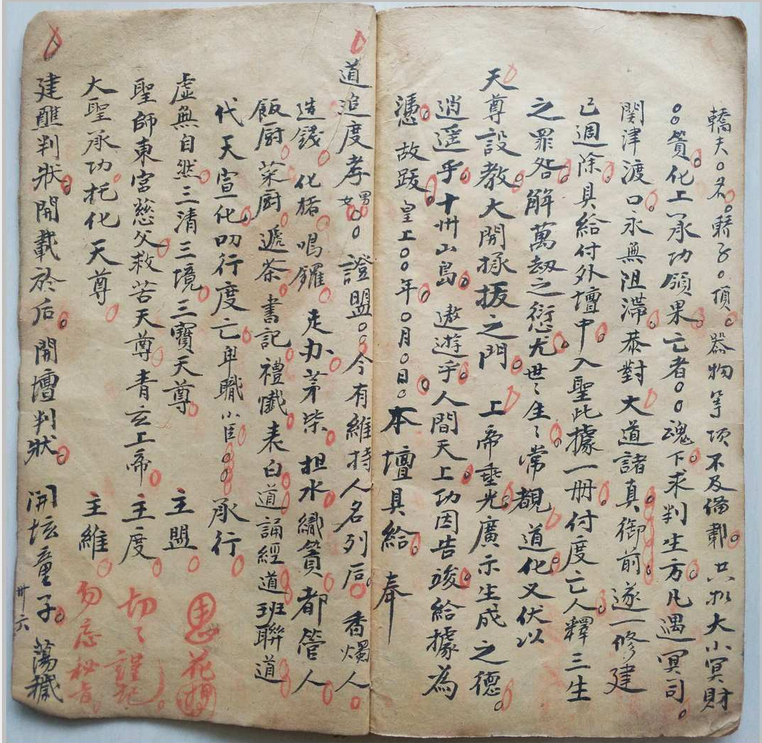 轎夫○名。轎子○頂。器物等項不及備載。只化大小冥財
○○贊化上承功領果亡者○○魂下求判生方凡遇冥司
関津渡口永無阻滯恭對大道諸真御前逐一修建
已週除具給付外壇中入聖此據一冊付度亡人釋三生
之罪咎解萬劫之愆尤世〻生〻常覩道化又伏以
天尊設教大開採拔之門上帝垂光廣示生成之德
逍遥乎十州山島遨遊乎人間天上功因告竣給據為
憑故跋皇上○○年○月○日○本壇具給奉
道追度孝男女○○證盟○○今有維持人名列后。香燭人
造錢化楮鳴鑼走办茅柴担水織贊都管人
飯厨菜厨遞茶書記禮懺表白道誦經道班聯道
代天宣化叨行度亡軄小臣○○承行
虛無自然三清三境三寶天尊主盟
聖師東宮慈父救苦天尊青玄上帝主度
大聖承功托化天尊主維
建醮判狀開載於后。開壇判狀。開坛童子。蕩穢
切〻謹記
勿忘秘言
卅六